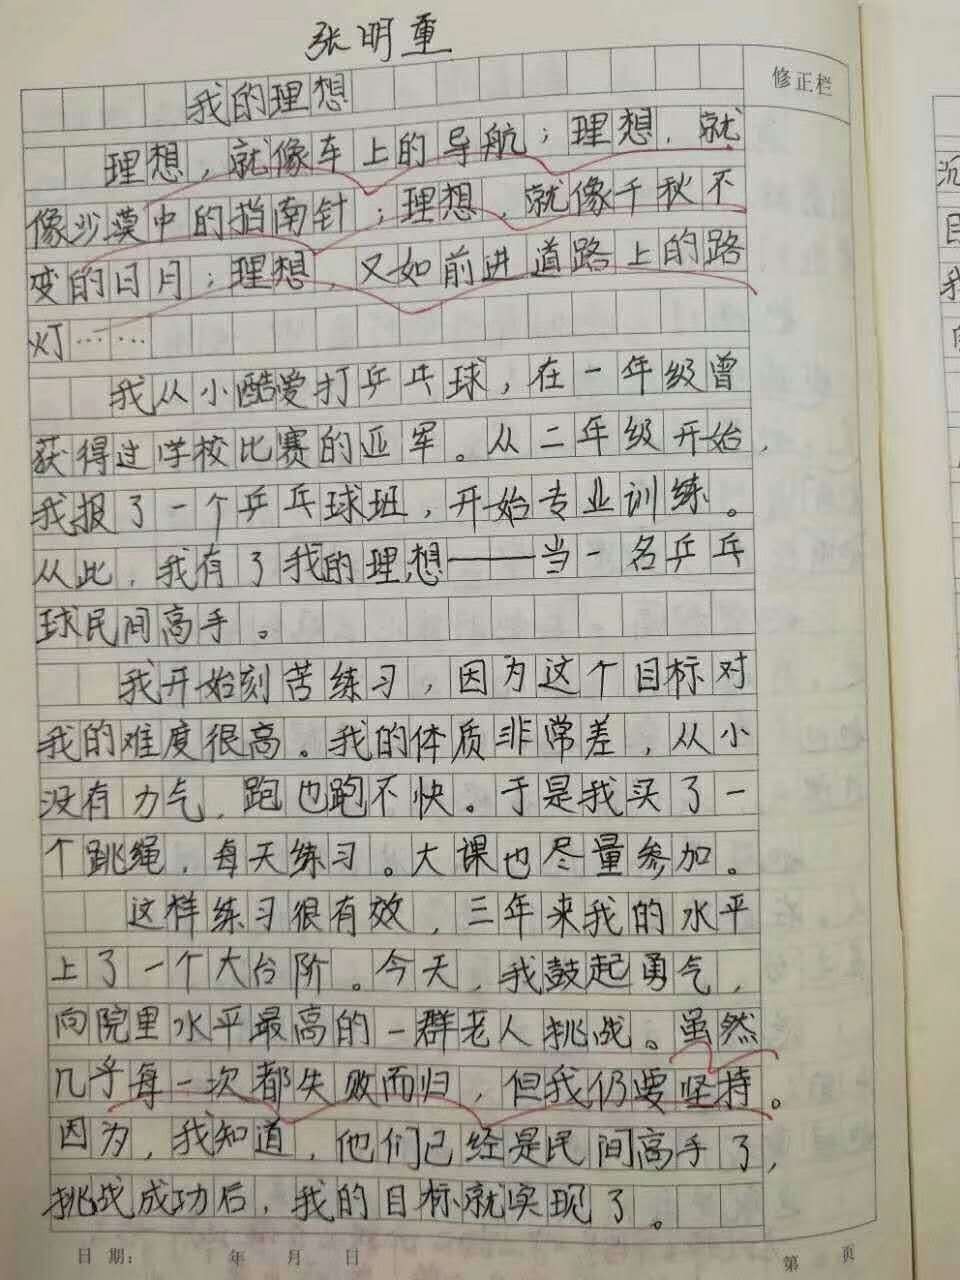 张明重
修正栏
我的理想
理想，就像车上的导航；理想，就
像沙漠中的指南针；理想，就像千秋不
变的日月；理想，又如前进道路上的路
灯……
我从小酷爱打乒乓球，在一年级曾
获得过学校比赛的亚军。从二年级开始，
我报了一个乒乓球班，开始专业训练。
从此，我有了我的理想——当一名乒乓
球民间高手。
我开始刻苦练习，因为这个目标对
我的难度很高。我的体质非常差，从小
没有力气，跑也跑不快。于是我买了一
个跳绳，每天练习。大课也尽量参加。
这样练习很有效，三年来我的水平
上了一个大台阶。今天，我鼓起勇气，
向院里水平最高的一群老人挑战。虽然
几乎每一次都失败而归，但我仍要坚持。
因为，我知道，他们已经是民间高手了，
挑战成功后，我的目标就实现了。
日 期： 年 月 日 第 页
沉
目
我